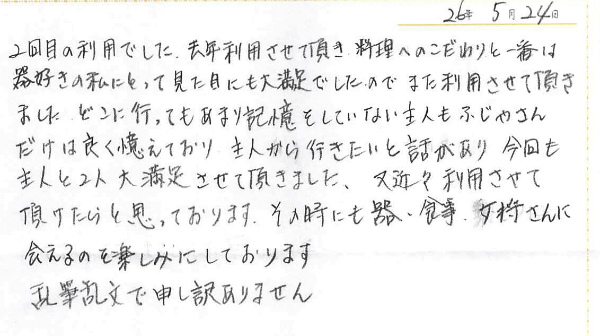 26年 5月24日
2回目の利用でした. 去年利用させて頂き. 料理へのこだわりと一番は
器好きの私にとって見た目にも大満足でしたのでまた利用させて頂き
ました どこに行ってもあまり記憶をしていない主人もふじやさん
だけは良く憶えており 主人から行きたいと話があり 今回も
主人と2人大満足させて頂きました、又近々利用させて
頂けたらと思っております. その時にも器・食事. 女将さんに
会えるのを楽しみにしております
乱筆乱文で申し訳ありません